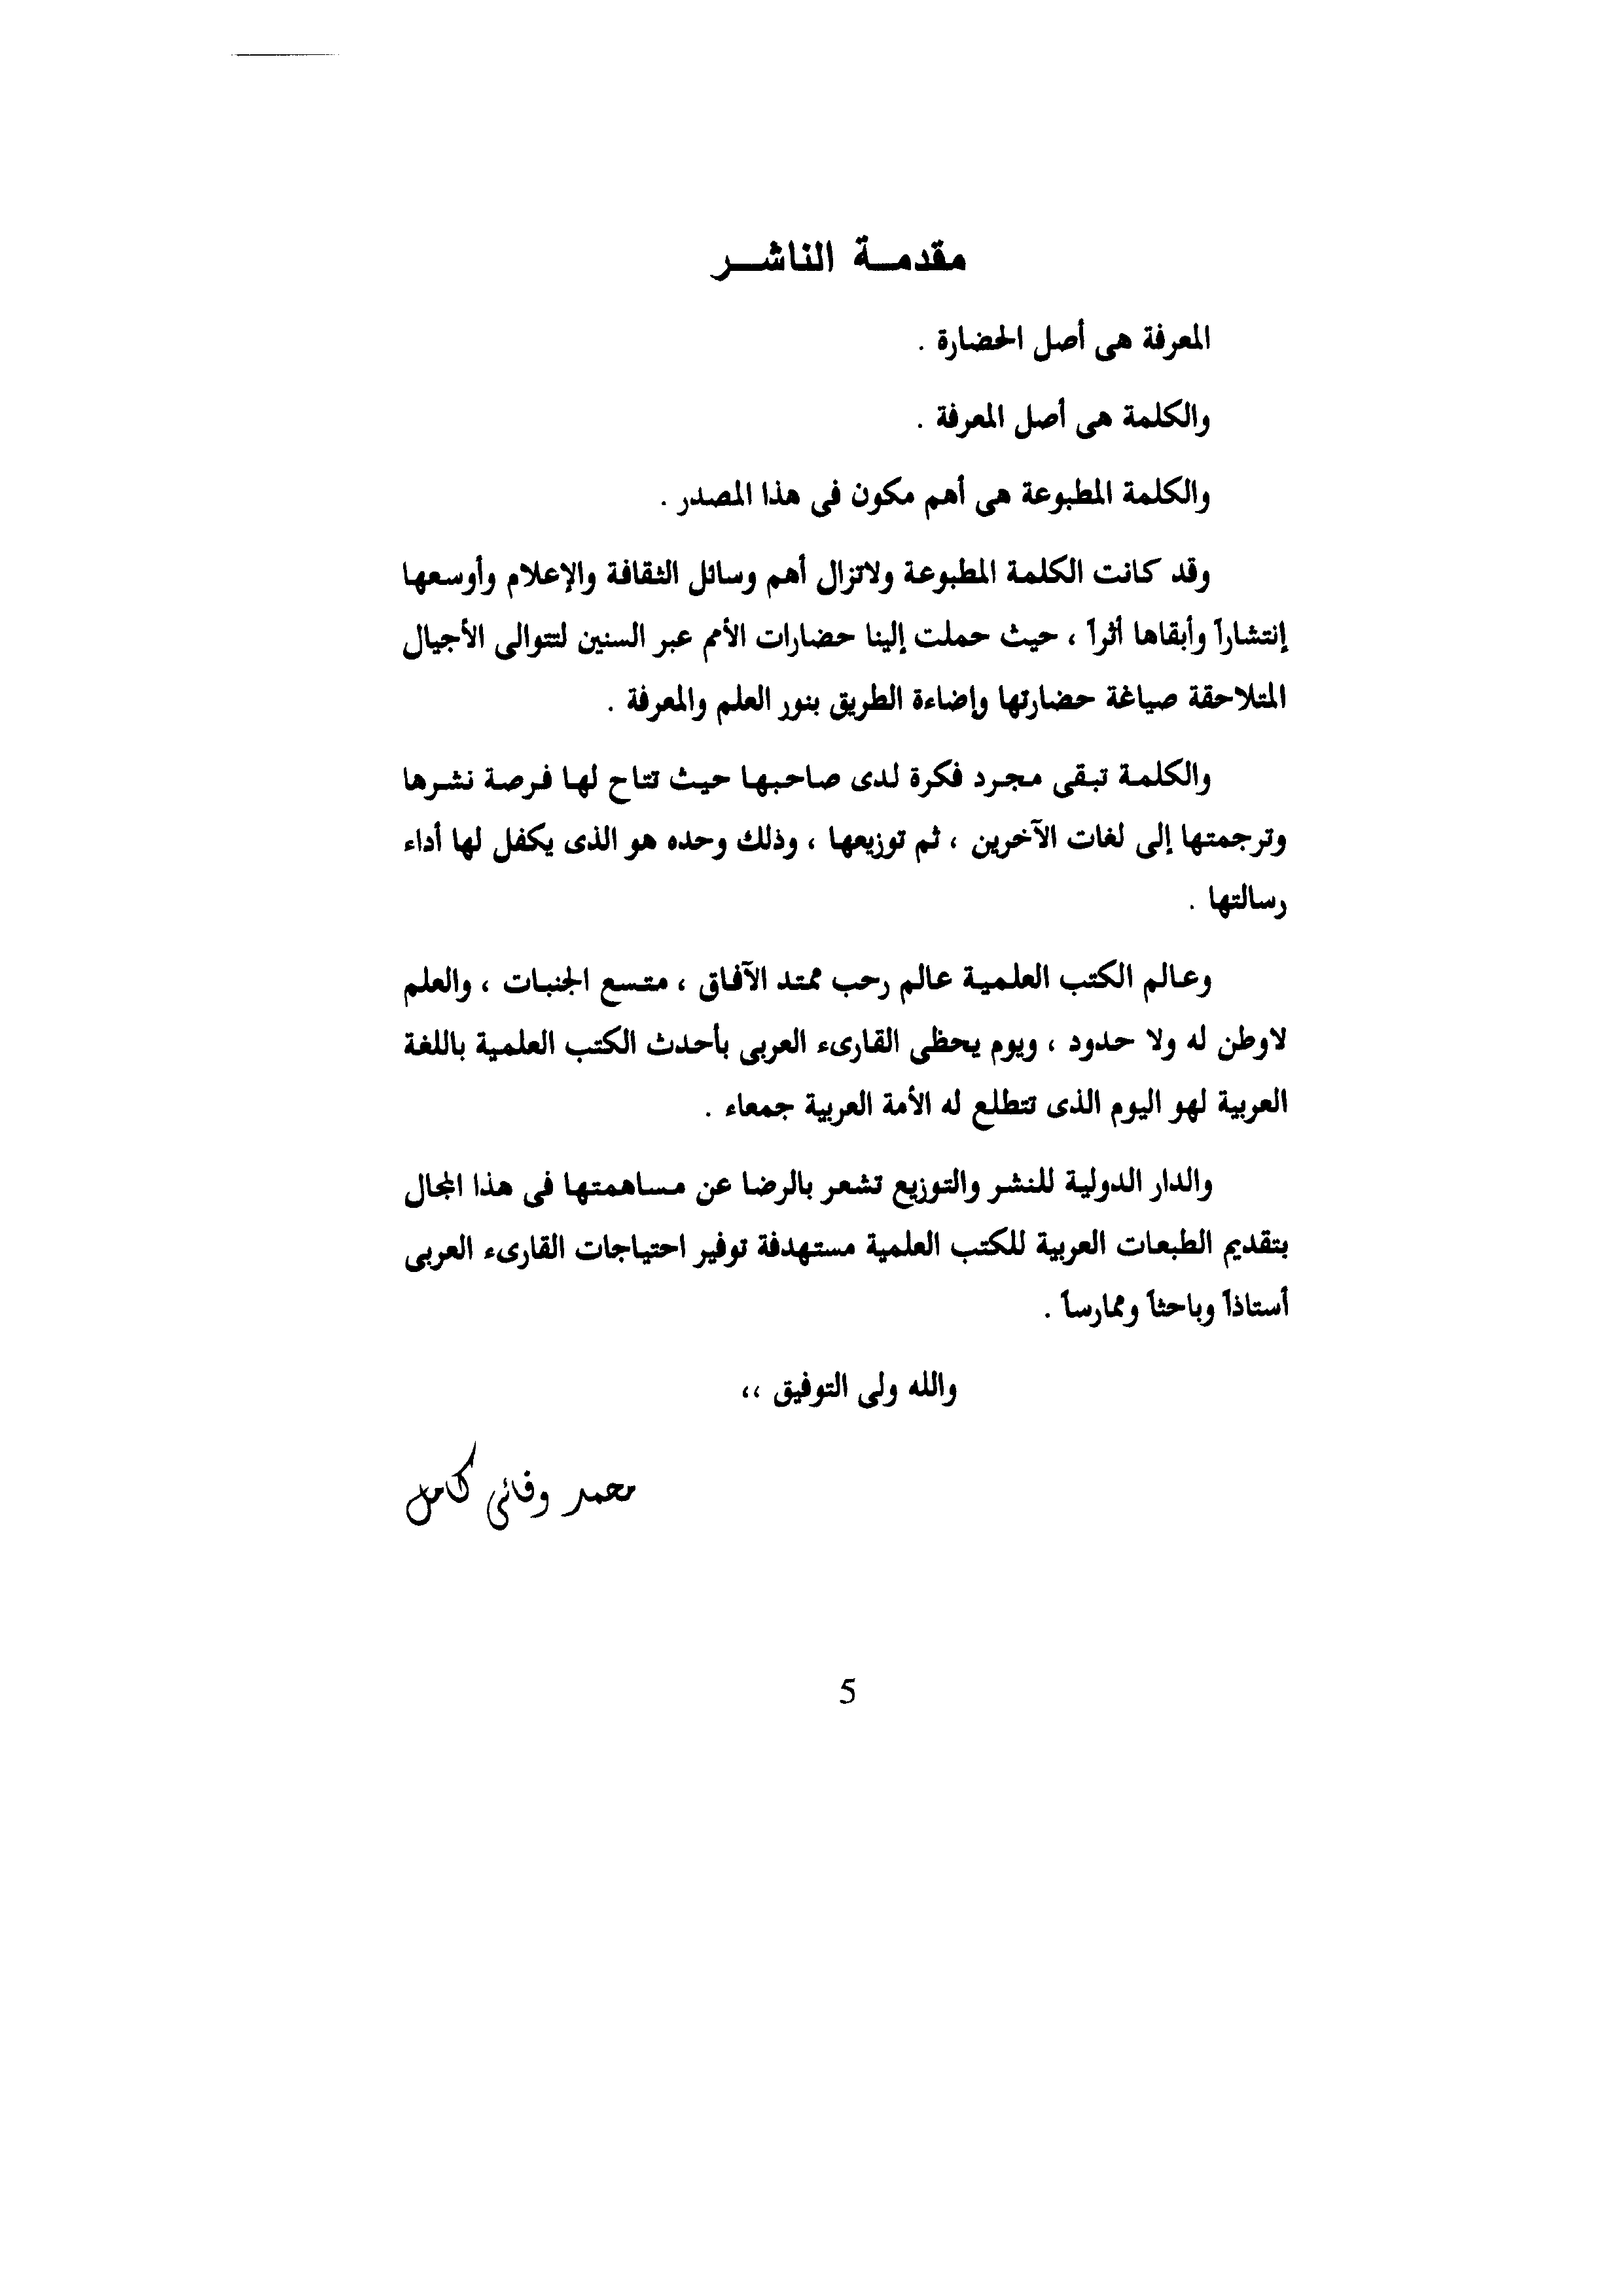 مقدمة الناشر
المعرفة هى أصل الحضارة .
والكلمة هى أصل المعرفة .
والكلمة المطبوعة هى أهم مكون فى هذا المصدر .
وقد كانت الكلمة المطبوعة ولاتزال أهم وسائل الثقافة والإعلام وأوسعها
إنتشاراً وأبقاها أثراً ، حيث حملت إلينا حضارات الأمم عبر السنين لتتوالى الأجيال
المتلاحقة صياغة حضارتها وإضاءة الطريق بنور العلم والمعرفة .
والكلمة تبقى مجرد فكرة لدى صاحبها حيث تتاح لها فرصة نشرها
وترجمتها إلى لغات الآخرين ، ثم توزيعها ، وذلك وحده هو الذى يكفل لها أداء
رسالتها .
وعالم الكتب العلمية عالم رحب ممتد الآفاق ، متسع الجنبات ، والعلم
لاوطن له ولا حدود ، ويوم يحظى القارىء العربى بأحدث الكتب العلمية باللغة
العربية لهو اليوم الذى تتطلع له الأمة العربية جمعاء .
والدار الدولية للنشر والتوزيع تشعر بالرضا عن مساهمتها فى هذا المجال
بتقديم الطبعات العربية للكتب العلمية مستهدفة توفير احتياجات القارىء العربى
أستاذاً وباحثاً وممارساً .
والله ولى التوفيق ،،
محمد وفائى كامل
5